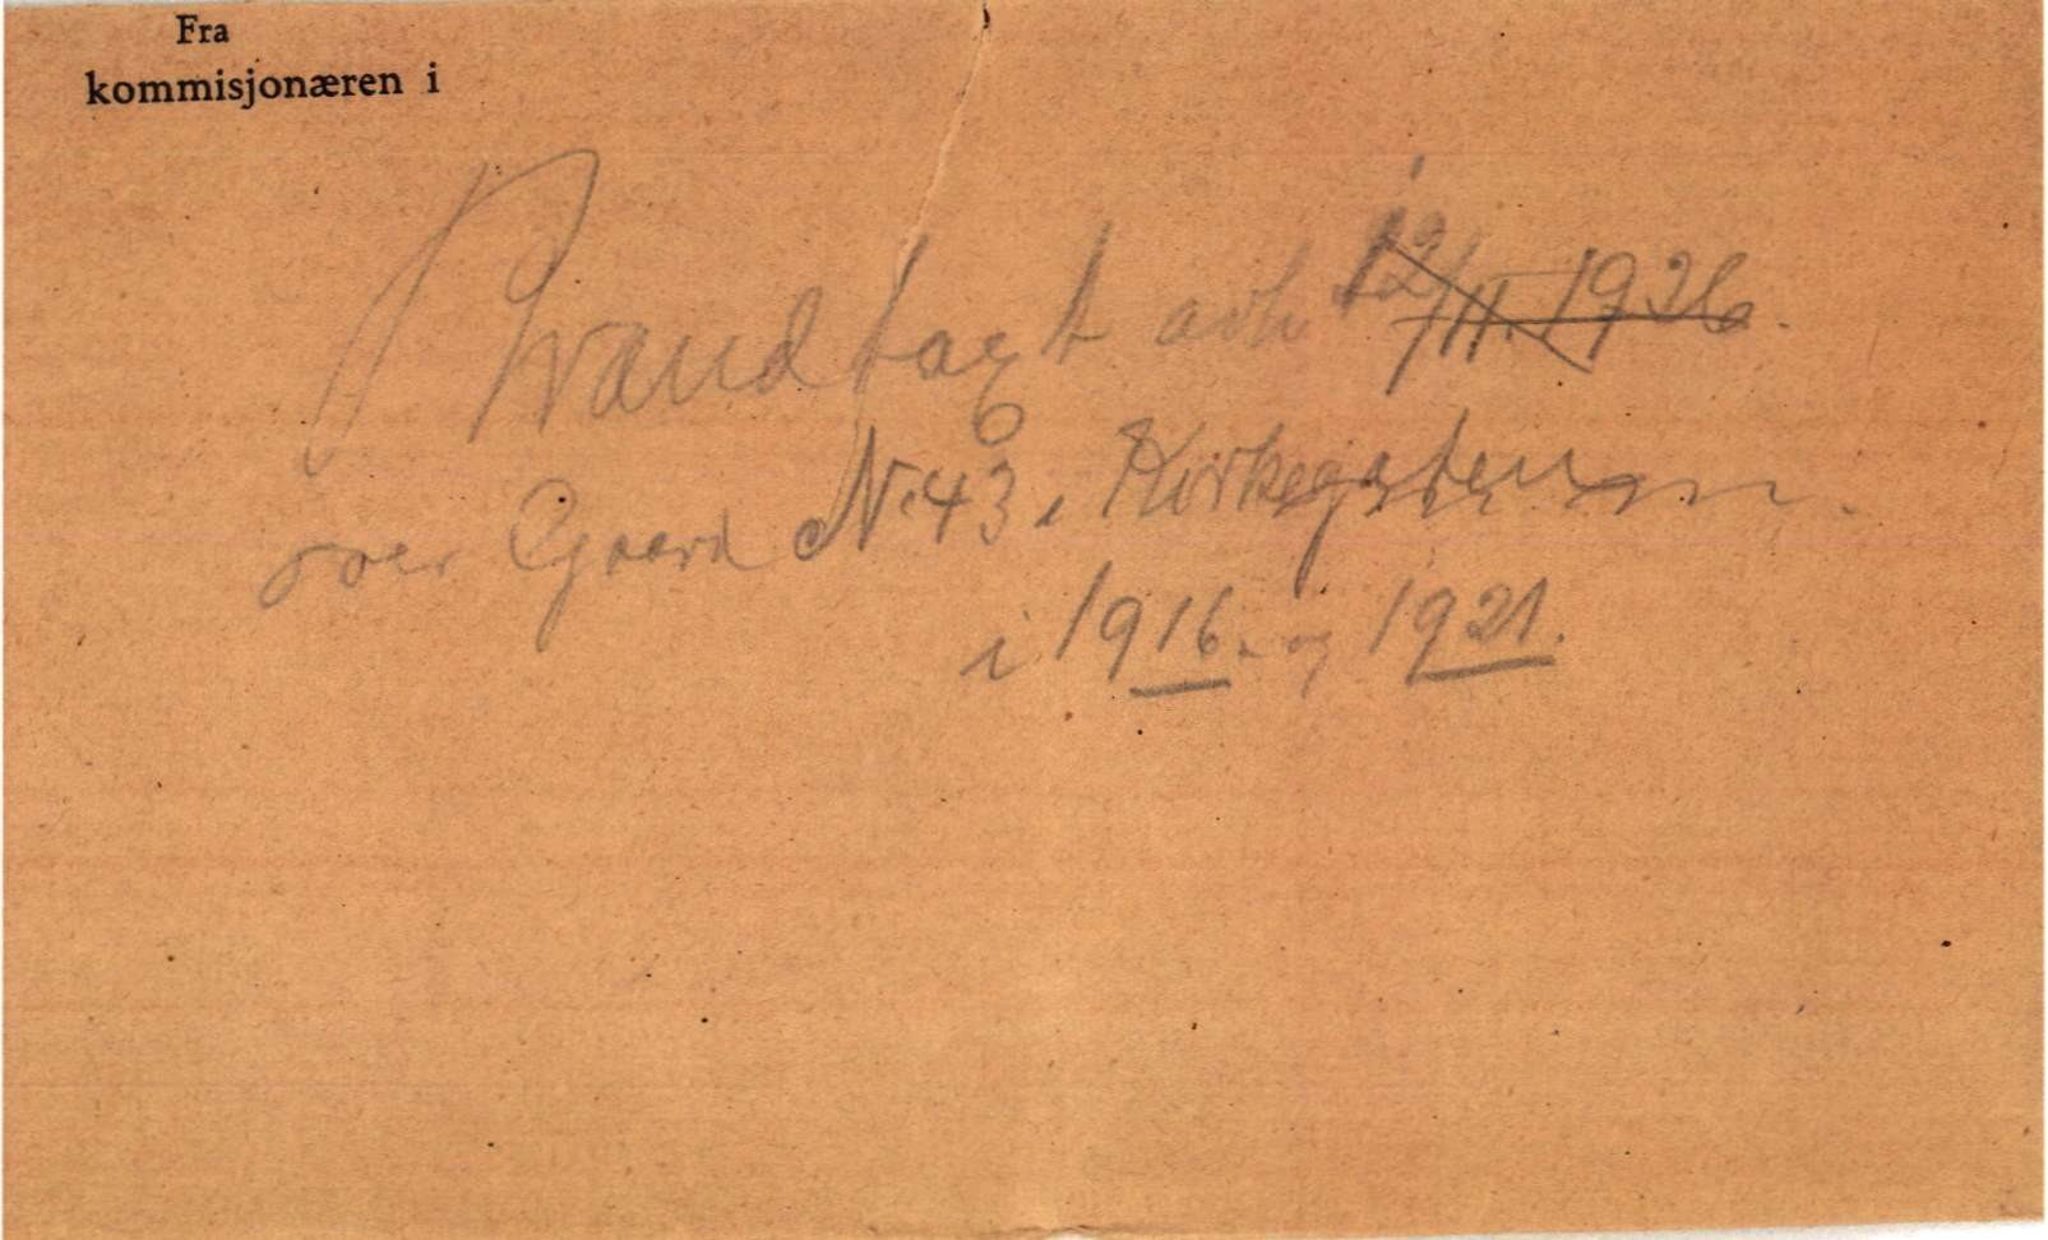 Fra
kommisjonæren i
Brandtagt avh 12/11. 1936.
over Gaard N. 43 i Kirkegaten
i 1916. og 1921.